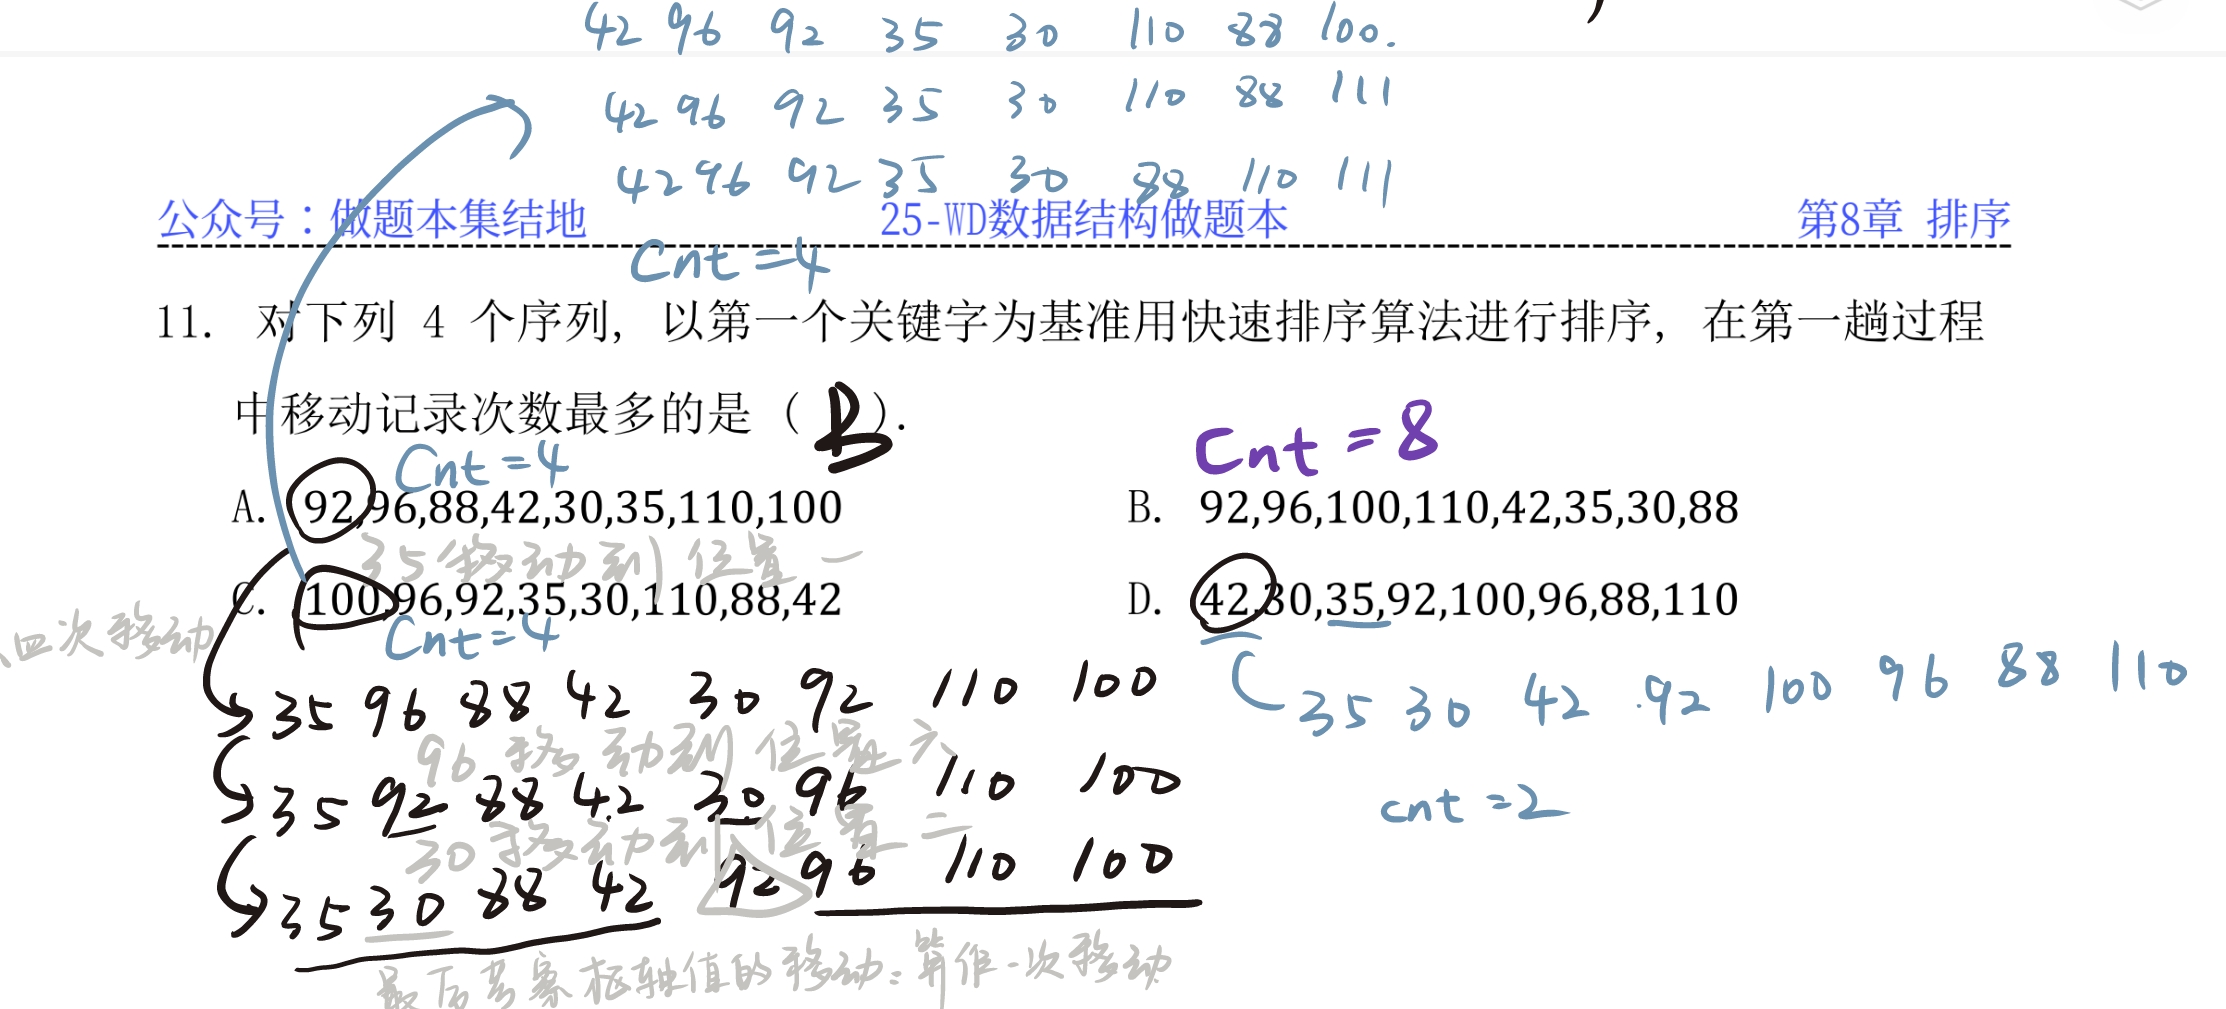 42 96 92 35 30 110 88 100.
42 96 92 35 30 110 88 111
42 96 92 35 30 88 110 111
公众号：做题本集结地 25-WD数据结构做题本 第8章 排序
Cnt=4
11. 对下列 4 个序列，以第一个关键字为基准用快速排序算法进行排序，在第一趟过程
中移动记录次数最多的是（B）.
Cnt=4 Cnt=8
A. 92,96,88,42,30,35,110,100 B. 92,96,100,110,42,35,30,88
35移动到位置一
C. 100,96,92,35,30,110,88,42 D. 42,30,35,92,100,96,88,110
四次移动 Cnt=4
35 96 88 42 30 92 110 100 35 30 42 92 100 96 88 110
96移动到位置六
35 92 88 42 30 96 110 100 cnt=2
30移动到位置二
35 30 88 42 92 96 110 100
最后考察枢轴值的移动:算作一次移动